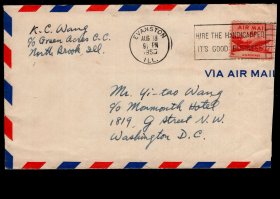 K. C. Wang
% Green Acres C.C.
North Brook Ill.
EVANSTON
AUG 18
9 PM
1953
ILL.
HIRE THE HANDICAPPED
IT'S GOOD BUSINESS
AIR MAIL
VIA AIR MAIL
Mr. Yi-tao Wang
% Monmouth Hotel
1819, G street N.W.
Washington D.C.